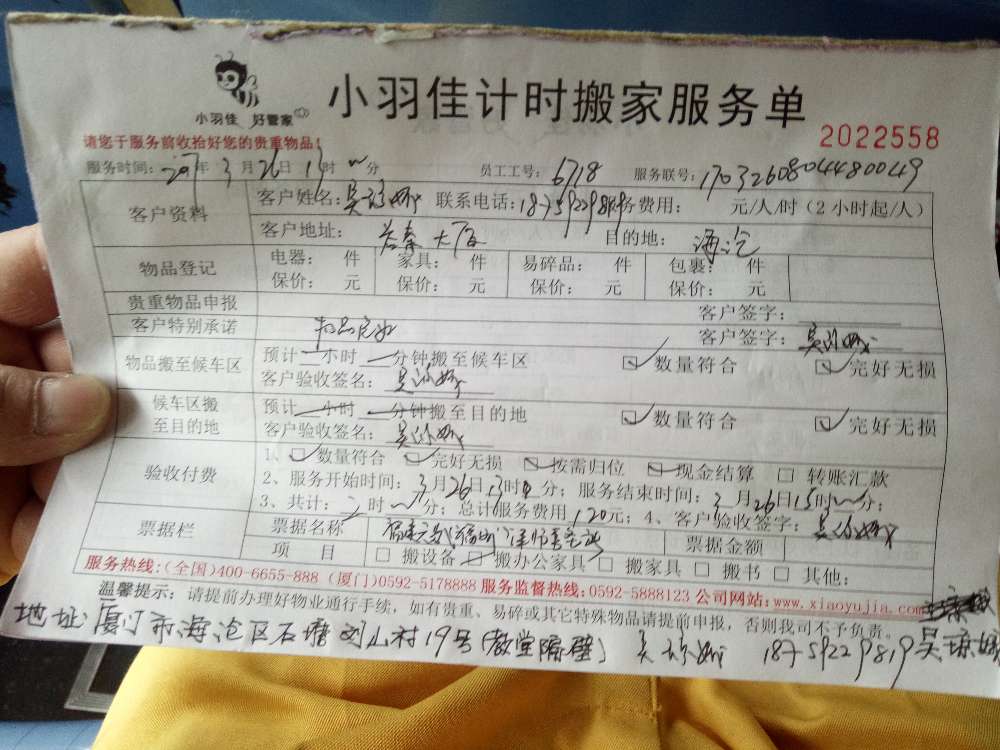 小羽佳计时搬家服务单
小羽佳 好管家
2022558
请您于服务前收拾好您的贵重物品!
服务时间: 2017年3月26日13时 分 员工工号: 6718 服务联号: 17032608044800049
客户资料
客户姓名: 吴琼娥 联系电话: 服务费用: 元/人/时(2小时起/人)
客户地址: 大厦 目的地: 海沧
物品登记
电器: 件 家具: 件 易碎品: 件 包裹: 件
保价: 元 保价: 元 保价: 元 保价: 元
贵重物品申报 客户签字:
客户特别承诺 客户签字: 吴琼娥
物品搬至候车区
预计 小时 分钟搬至候车区 ☑数量符合 ☑完好无损
客户验收签名: 吴琼娥
候车区搬至目的地
预计 小时 分钟搬至目的地 ☑数量符合 ☑完好无损
客户验收签名: 吴琼娥
验收付费
1、☑数量符合 ☑完好无损 ☑按需归位 ☑现金结算 □ 转账汇款
2、服务开始时间: 3月26日13时 分; 服务结束时间: 3月26日15时 分;
3、共计: 2时 分; 总计服务费用120元; 4、客户验收签字: 吴琼娥
票据栏
票据名称 票据金额
项 目 □ 搬设备 ☑搬办公家具 □ 搬家具 □ 搬书 □ 其他:
服务热线:(全国)400-6655-888 (厦门)0592-5178888 服务监督热线:0592-5888123 公司网站:www.xiaoyujia.com
温馨提示: 请提前办理好物业通行手续, 如有贵重、易碎或其它特殊物品请提前申报, 否则我司不予负责。
地址: 厦门市海沧区石塘 村19号(教堂隔壁) 吴琼娥 18759229819 吴琼娥